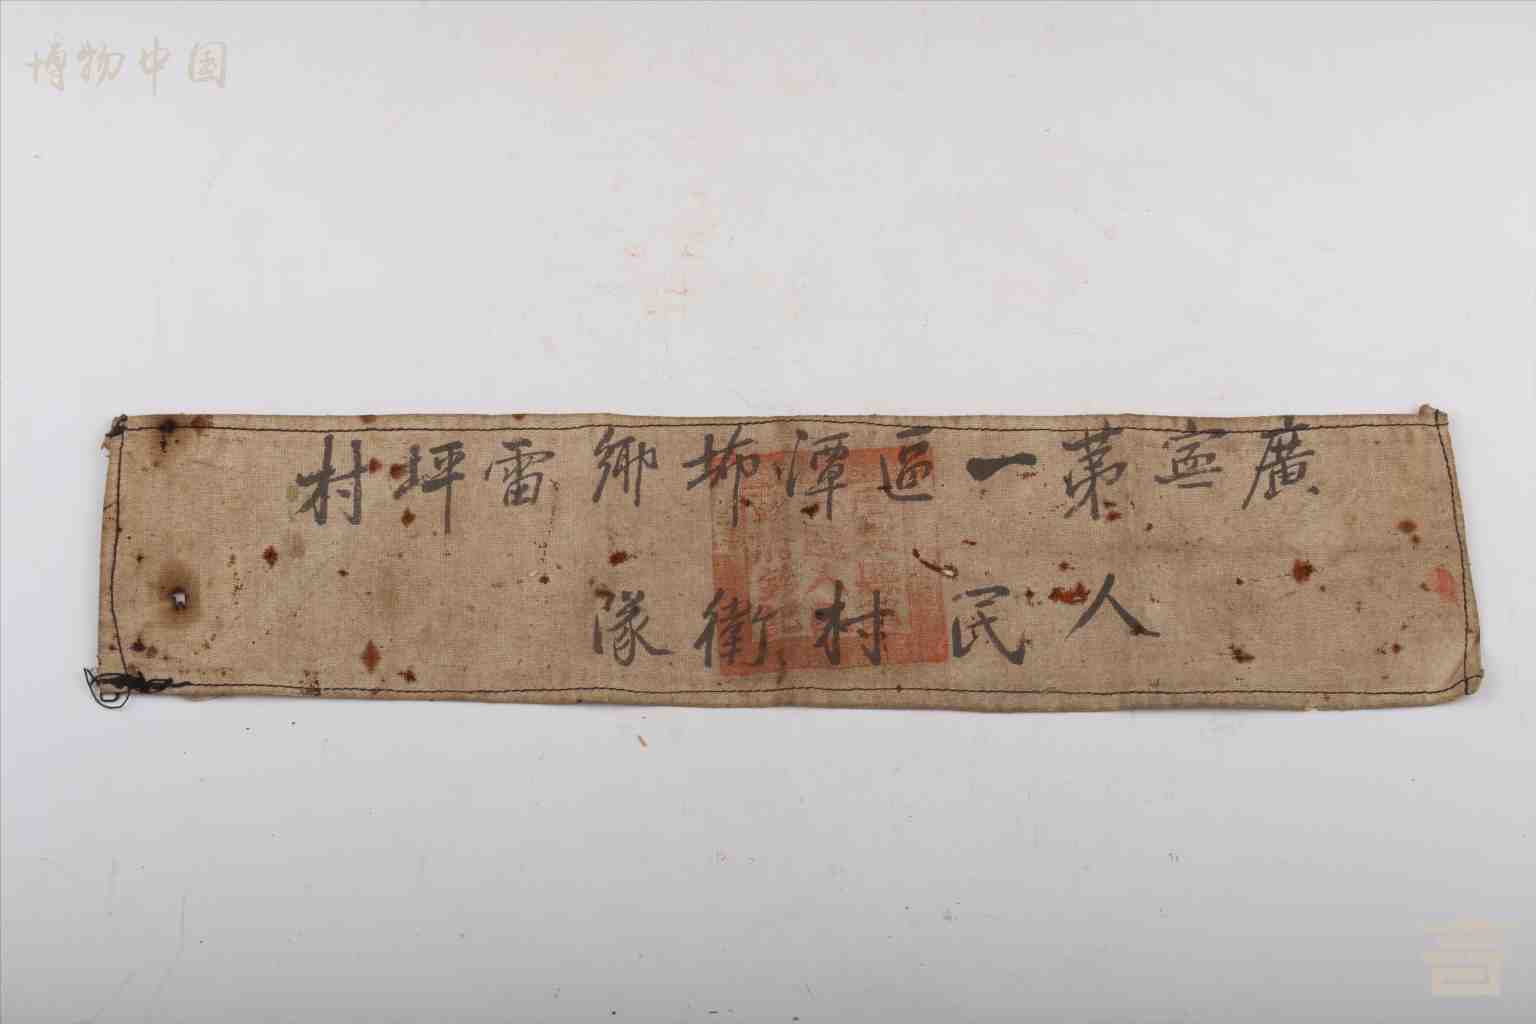 博物中国
廣寍第一區潭㘵鄉雷坪村
人民村衛隊